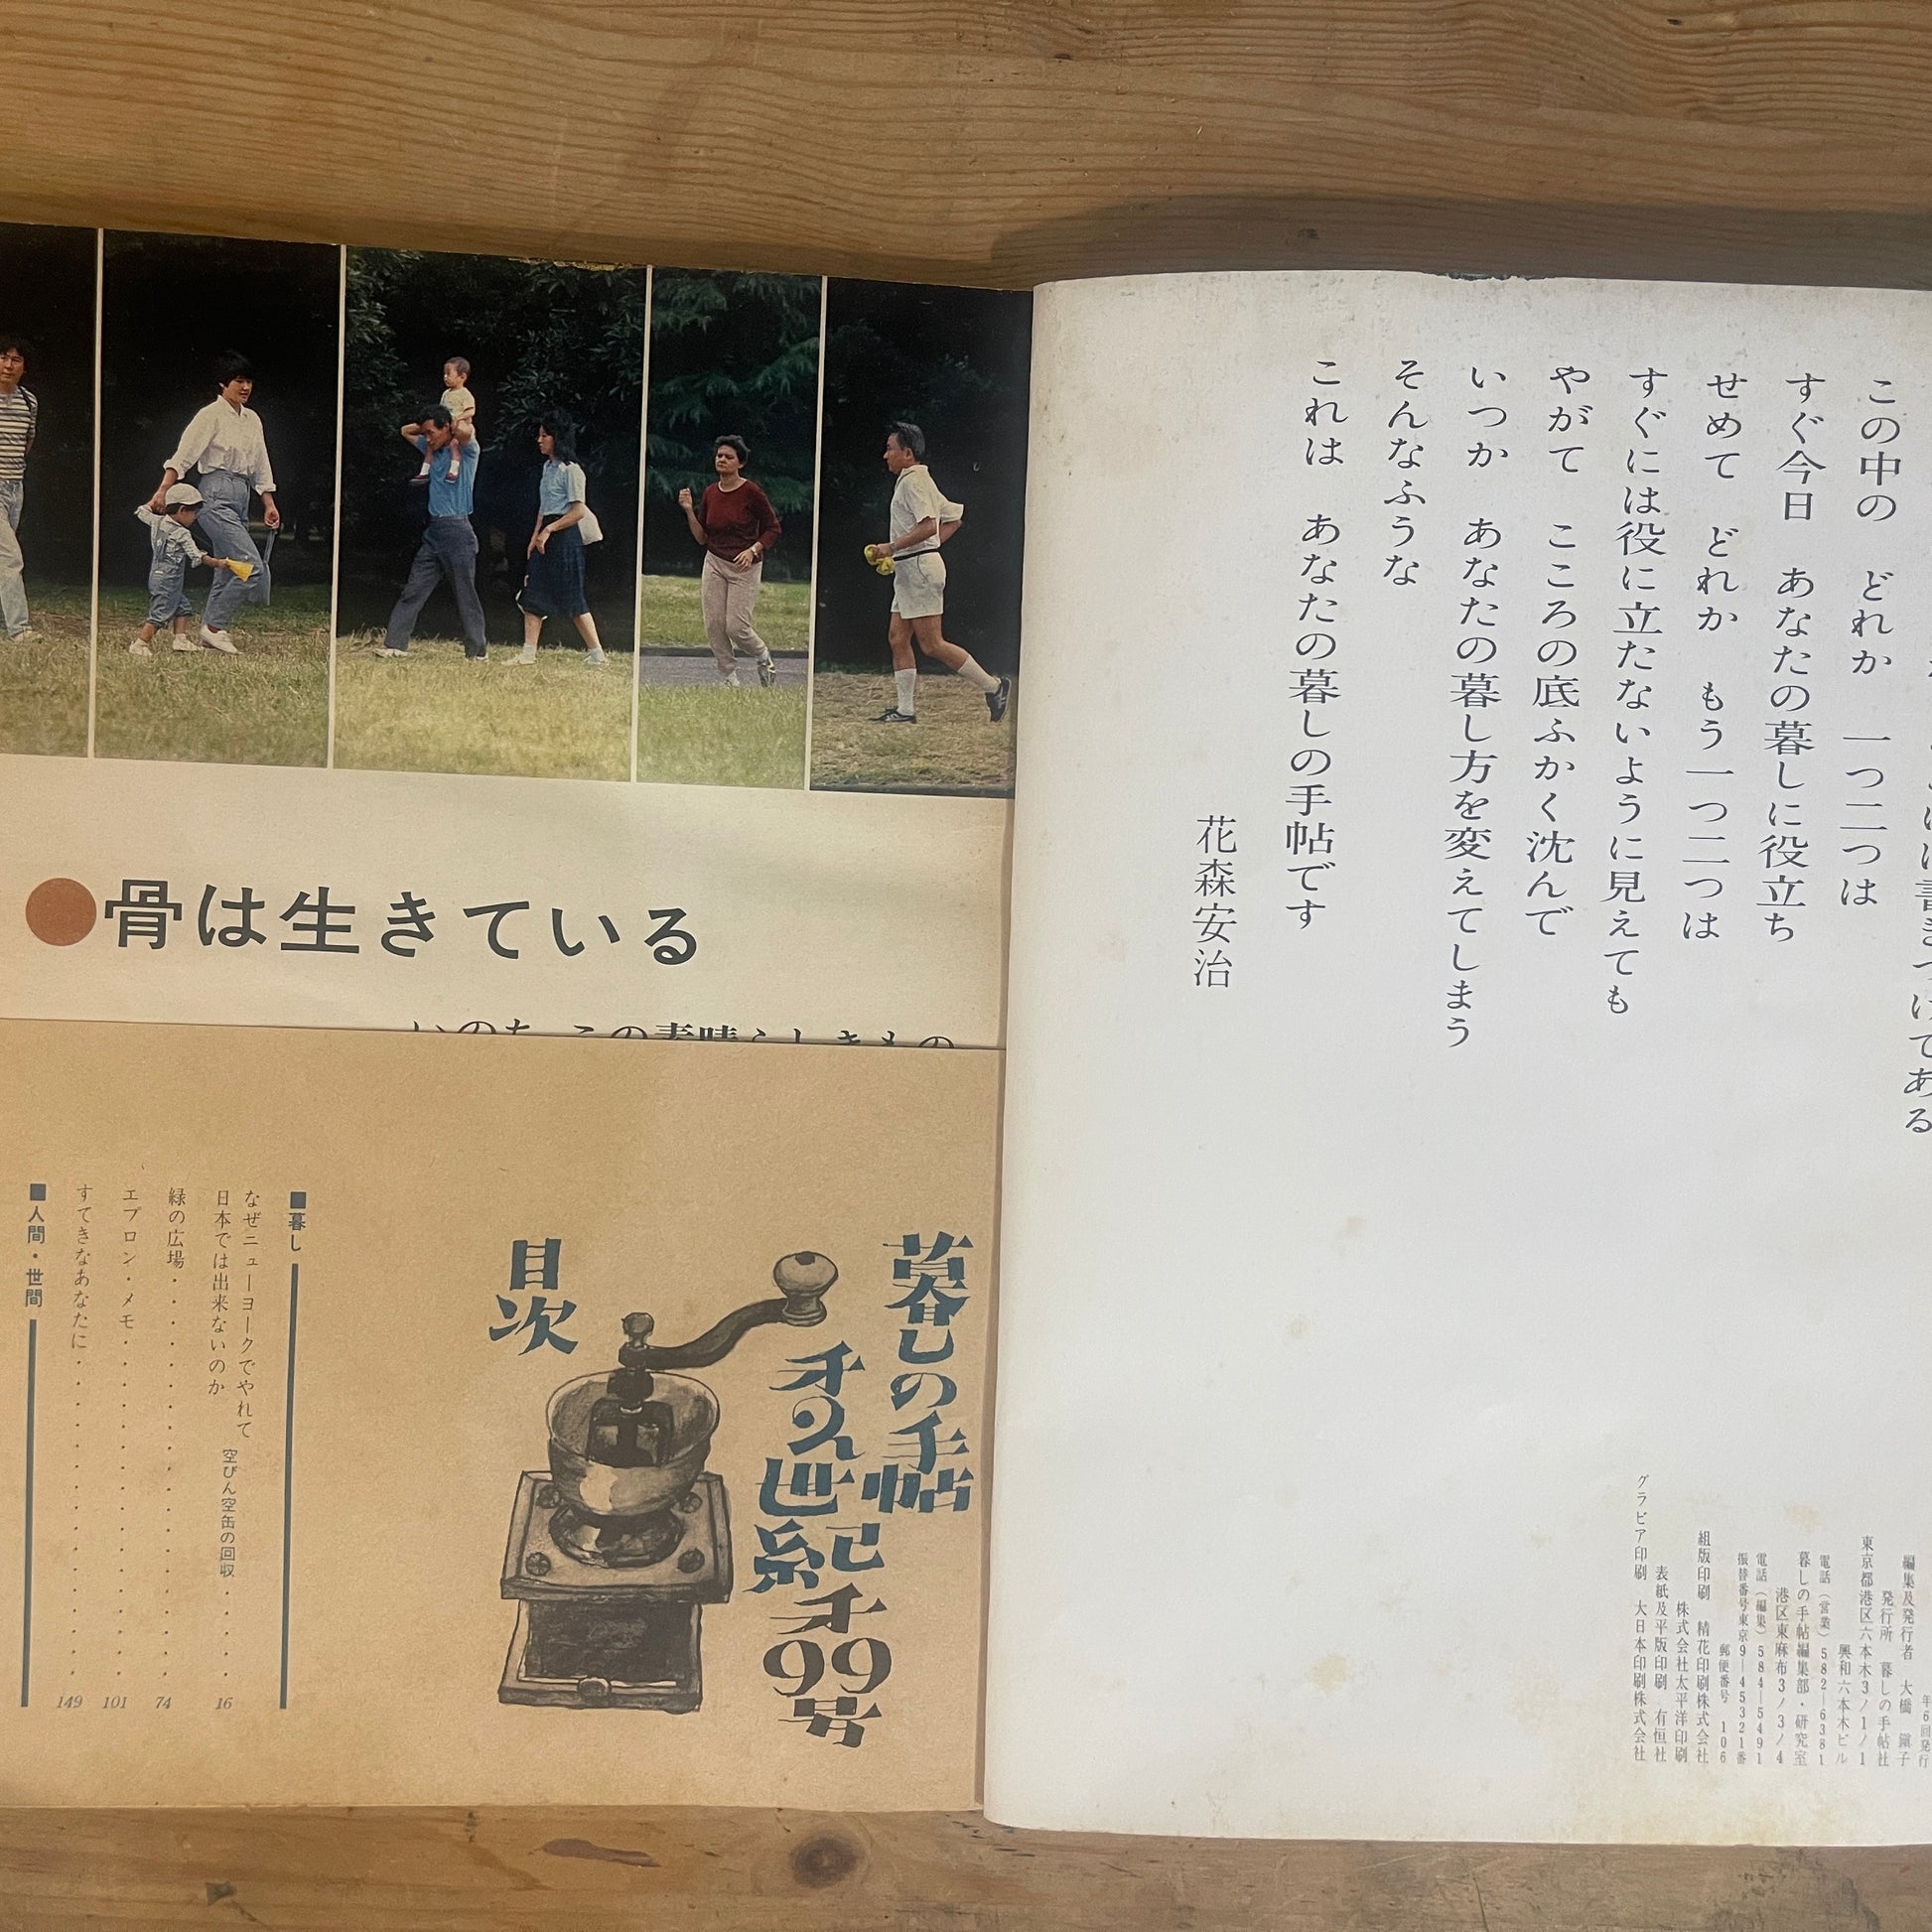 この中の　どれか　一つ二つは
すぐ今日　あなたの暮しに役立ち
せめて　どれか　もう一つ二つは
すぐには役に立たないように見えても
やがて　こころの底ふかく沈んで
いつか　あなたの暮し方を変えてしまう
そんなふうな
これは　あなたの暮しの手帖です
花森安治
年6回発行
編集及発行者　大橋　鎭子
発行所　暮しの手帖社
東京都港区六本木3ノ1ノ1
興和六本木ビル
電話（営業）582―6381
暮しの手帖編集部・研究室
港区東麻布3ノ3ノ4
電話（編集）584―5491
振替番号東京9―45321番
郵便番号　106
組版印刷　精花印刷株式会社
株式会社太平洋印刷
表紙及平版印刷　有恒社
グラビア印刷　大日本印刷株式会社
●骨は生きている
いのち　この素晴らしきもの
暮しの手帖
オ2世紀オ99号
目次
■暮し
なぜニューヨークでやれて
日本では出来ないのか　空びん空缶の回収・・・・・16
緑の広場・・・・・・・・・・・・・・・・・・・・74
エプロン・メモ・・・・・・・・・・・・・・・・・101
すてきなあなたに・・・・・・・・・・・・・・・・149
■人間・世間